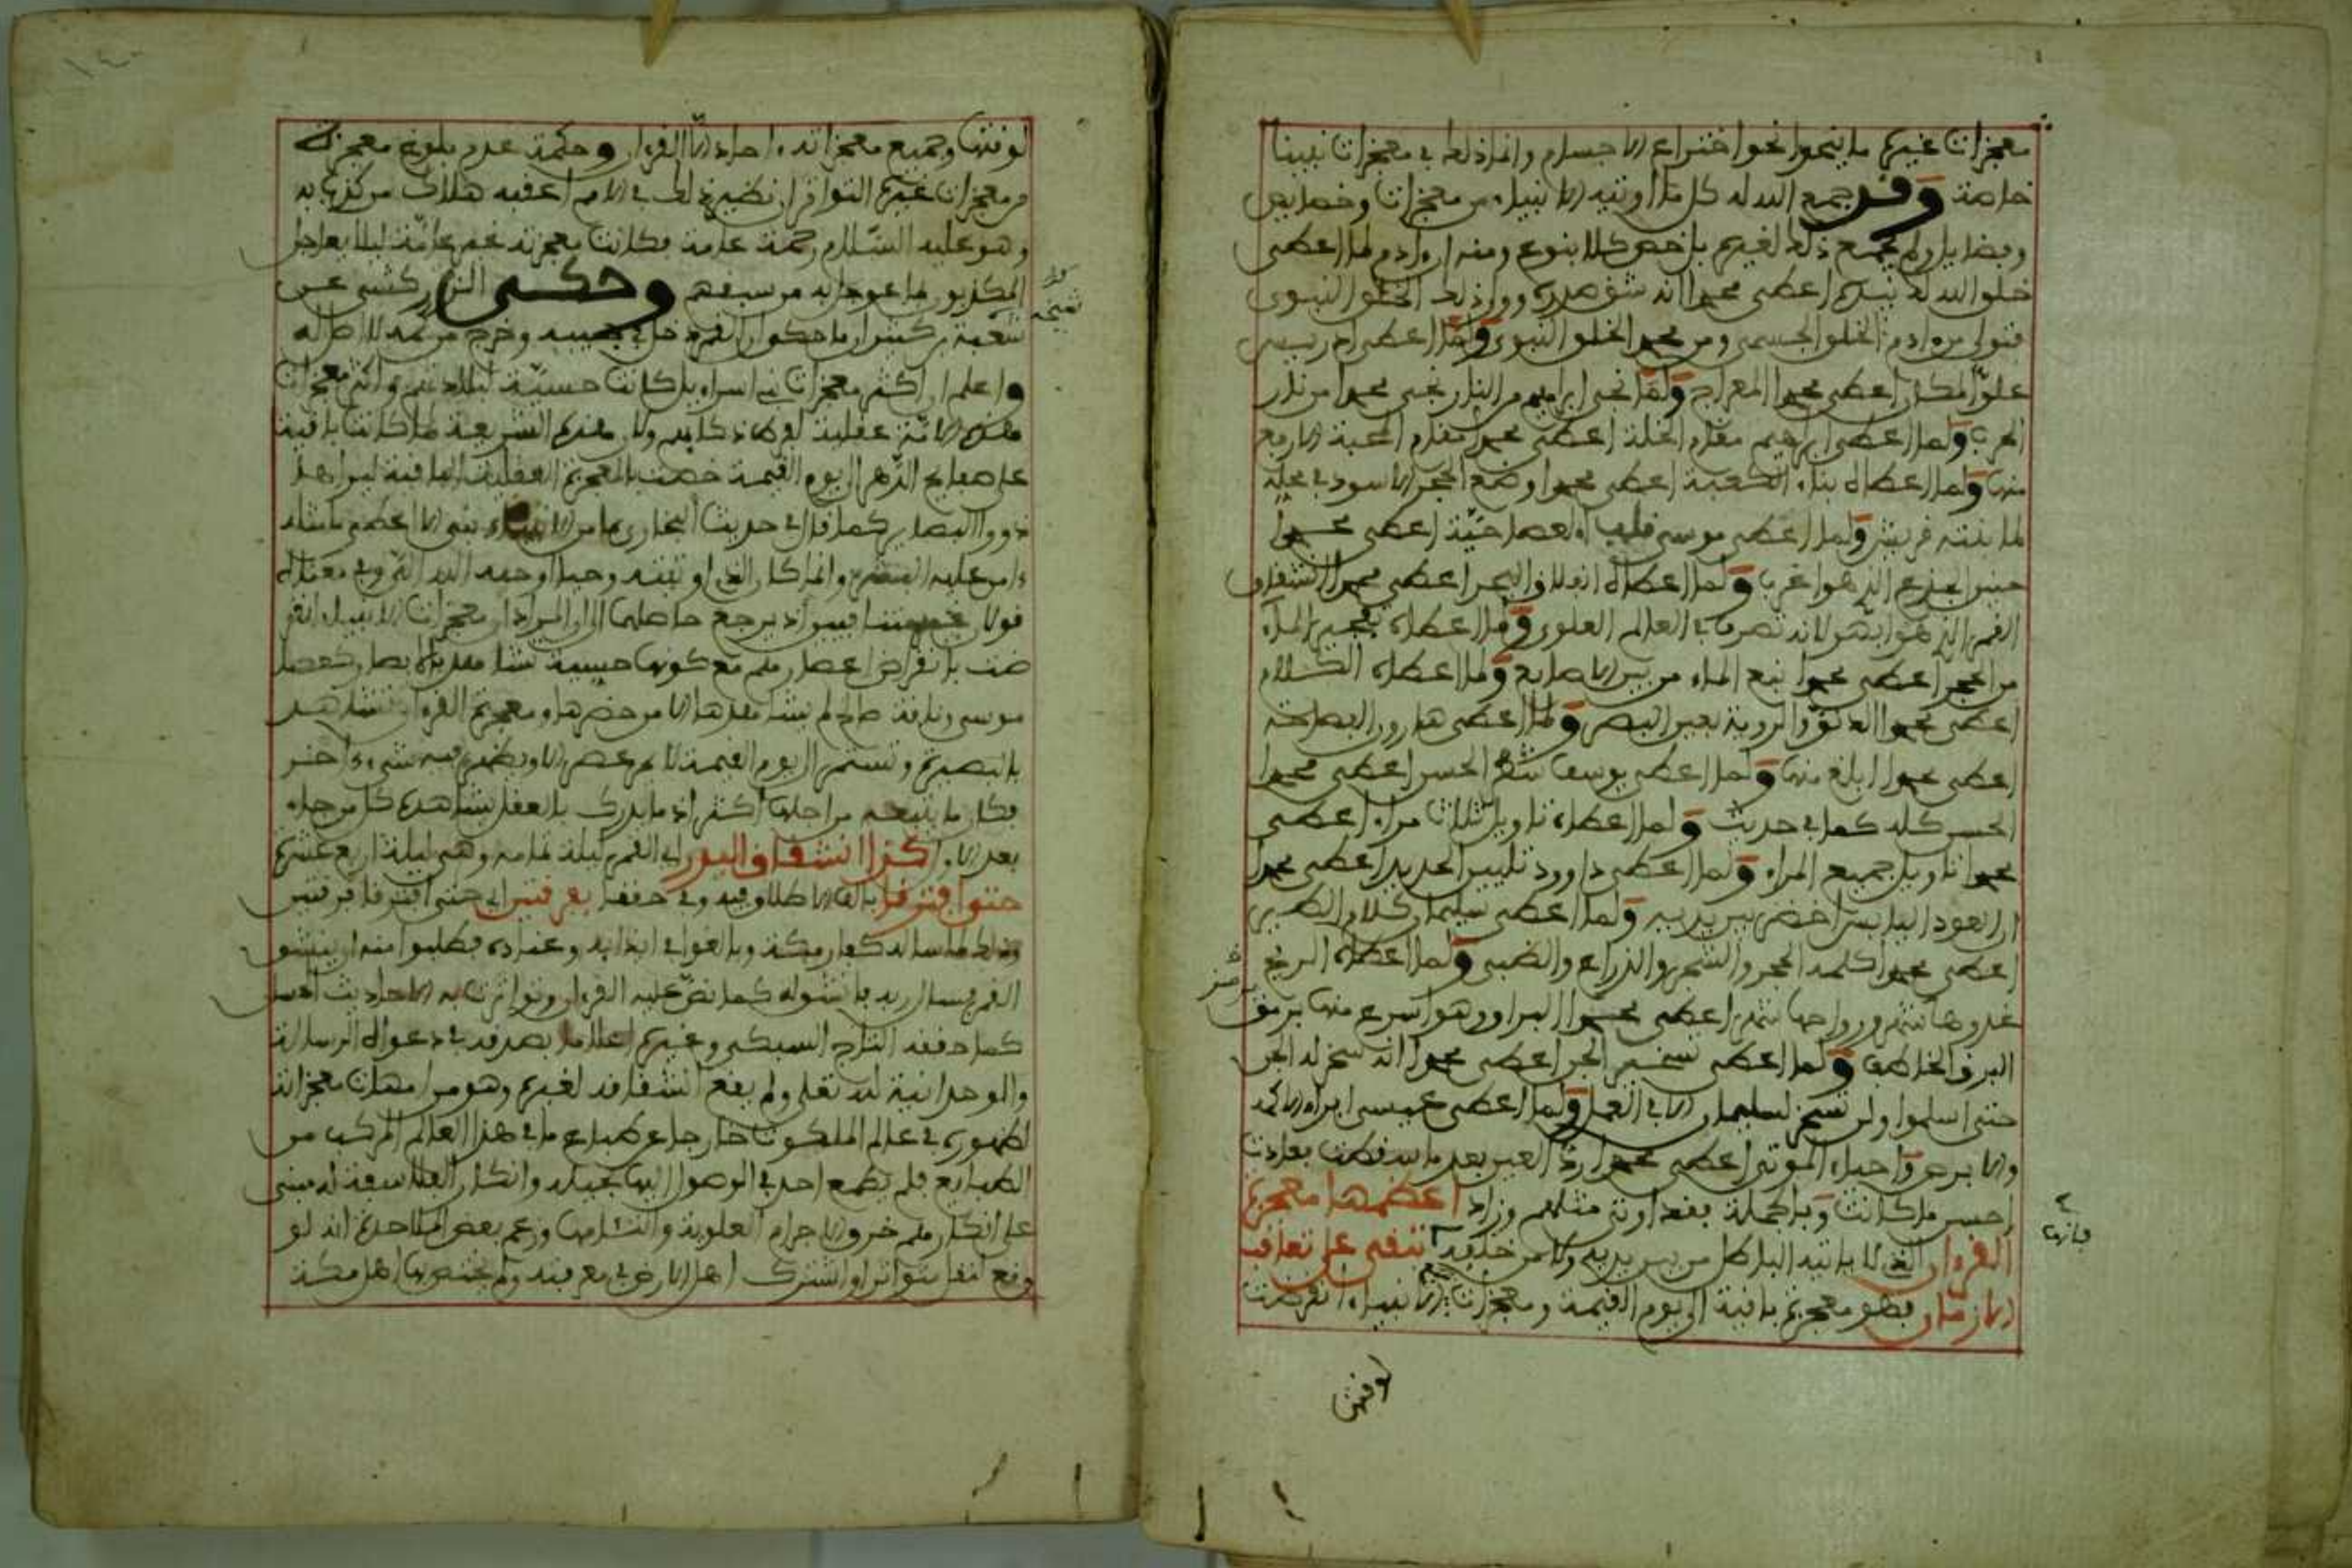 معجزات غيره ما ينحوا نحو اختراع الاجسام وانما ذلك في معجزات نبينا
خاصة وقد جمع الله له كل ما اوتيه الانبياء من معجزات وخصايص
وفضايل ولم يجمع ذلك لغيره بل خص كلا بنوع ومنه ان ادم لما اعطى
خلق الله له بيده اعطى محمدا انه شق صدره وولى ذلك الخلق النبوى
فتولى من ادم الخلق الجسمى ومن محمد الخلق النبوى ولما اعطى ادريس
علو المكان اعطى محمدا المعراج ولما نجى ابراهيم من النار نجى محمدا من نار
الحرب ولما اعطى ابراهيم مقام الخلة اعطى محمدا مقام المحبة الارفع
منها ولما اعطاه بناء الكعبة اعطى محمدا وضع الحجر الاسود في محله
لما بنته قريش ولما اعطى موسى قلب العصا حية اعطى محمدا
حنين الجذع الذى هو اغرب ولما اعطاه انفلاق البحر اعطى محمدا انشقاق
القمر الذى هو ابهر لانه تصرف في العالم العلوى ولما اعطاه تفجير الماء
من الحجر اعطى محمدا نبع الماء من بين الاصابع ولما اعطاه الكلام
اعطى محمدا الدنو والروية بعين البصر ولما اعطى هارون الفصاحة
اعطى محمدا ابلغ منها ولما اعطى يوسف شطر الحسن اعطى محمدا
الحسن كله كما في حديث ولما اعطاه تاويل ثلاث مراء اعطى
محمدا تاويل جميع المراء ولما اعطى داوود تليين الحديد اعطى محمدا
ان العود اليابس اخضر بين يديه ولما اعطى سليمان كلام الطير
اعطى محمدا كلمه الحجر والشجر والذراع والضب ولما اعطاه الريح
غدوها شهر ورواحها شهر اعطى محمدا البراق وهو اسرع منها بل من
البرق الخاطف ولما اعطى تسخير الجن اعطى محمدا انه سخر له الجن
حتى اسلموا ولن تسخر لسليمان الا في العمل ولما اعطى عيسى ابراء الاكمه
والابرص واحياء الموتى اعطى محمدا رد العين بعد ما سقطت فعادت
احسن ما كانت وبالجملة فقد اوتى مثلهم وزاد اعظمها معجزة
القرءان الذى لا ياتيه الباطل من بين يديه ولا من خلفه تبقى على تعاقب
فانها
الازمان فهو معجزة باقية الى يوم القيمة ومعجزات الانبياء انقرضت
لوقتها
لوقتها وجميع معجزاته احاد الا القرءان وحكمة عدم بلوغ معجزاته
من معجزات غيره التواتر ان نظير ذلك في الامم اعقبه هلاك من كذب به
وهو عليه السلام رحمة عامة فكانت معجزته غير عامة ليلا يعاجل
المكذبون بما عوجل به من سبقهم وحكى الزركشى عن
كثير ان ما حكوا ان القمر دخل في جيبه وخرج من كمه لا اصل له
واعلم ان اكثر معجزات بنى اسراءيل كانت حسية لبلادتهم واكثر معجزات
هذه الامة عقلية لفرط ذكايهم ولان هذه الشريعة لما كانت باقية
على صفايح الدهر الى يوم القيمة خصت بالمعجزة العقلية الباقية ليراها
ذووا البصاير كما قال في حديث البخارى ما من الانبياء نبى الا اعطى ما مثله
ءامن عليه البشر وانما كان الذى اوتيته وحيا اوحاه الله الى وفي معناه
قولان حاصلهما ان المراد ان معجزات الانبياء انقر
ضت بانقراض اعصارهم مع كونها حسية تشاهد بالابصار كعصا
موسى وناقة صالح لم يشاهدها الا من حضرها ومعجزة القرءان تشاهد
بالبصيرة وتستمر الى يوم القيمة لا يمر عصر الا ويظهر فيه شىء اخبر
فكان ما يتبعه من اجلها اكثر اذ ما يدرك بالعقل يشاهده كل من جاء
بعد الاول كذا انشقاق البدر اى القمر ليلة تمامه وهى ليلة اربع عشرة
حتى افترقا بالف الاطلاق فيه وفي حققا بفرقتين اى حتى افترقا فرقتين
وذلك لما ساله كفار مكة وبالغوا في ايذايه وعناده فطلبوا منه ان ينشق
القمر فسال ربه فانشق له كما نص عليه القرءان وتواترت به الاحاديث
كما حققه التاج السبكى وغيره اعلاما بصدقه في دعواه الرسالة
والوحدانية لله تعلى ولم يقع انشقاقه لغيره وهو من امهات معجزاته
لظهوره في عالم الملكوت خارجا عن طباع ما في هذا العالم المركب من
الطبايع فلم يطمع احد في الوصول اليها بحيلة وانكار الفلاسفة له مبنى
على انكارهم خرق الاجرام العلوية والتيامها وزعم بعض الملاحدة انه لو
وقع لنقل متواترا واشترك اهل الارض في معرفته ولم يختص بها اهل مكة